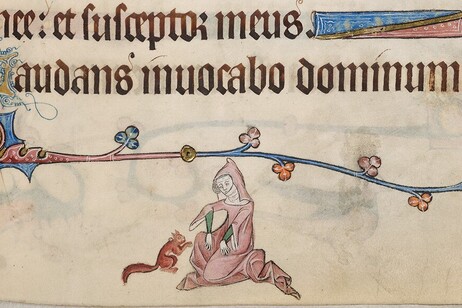 mee: et susceptor meus.
Laudans inuocabo dominum